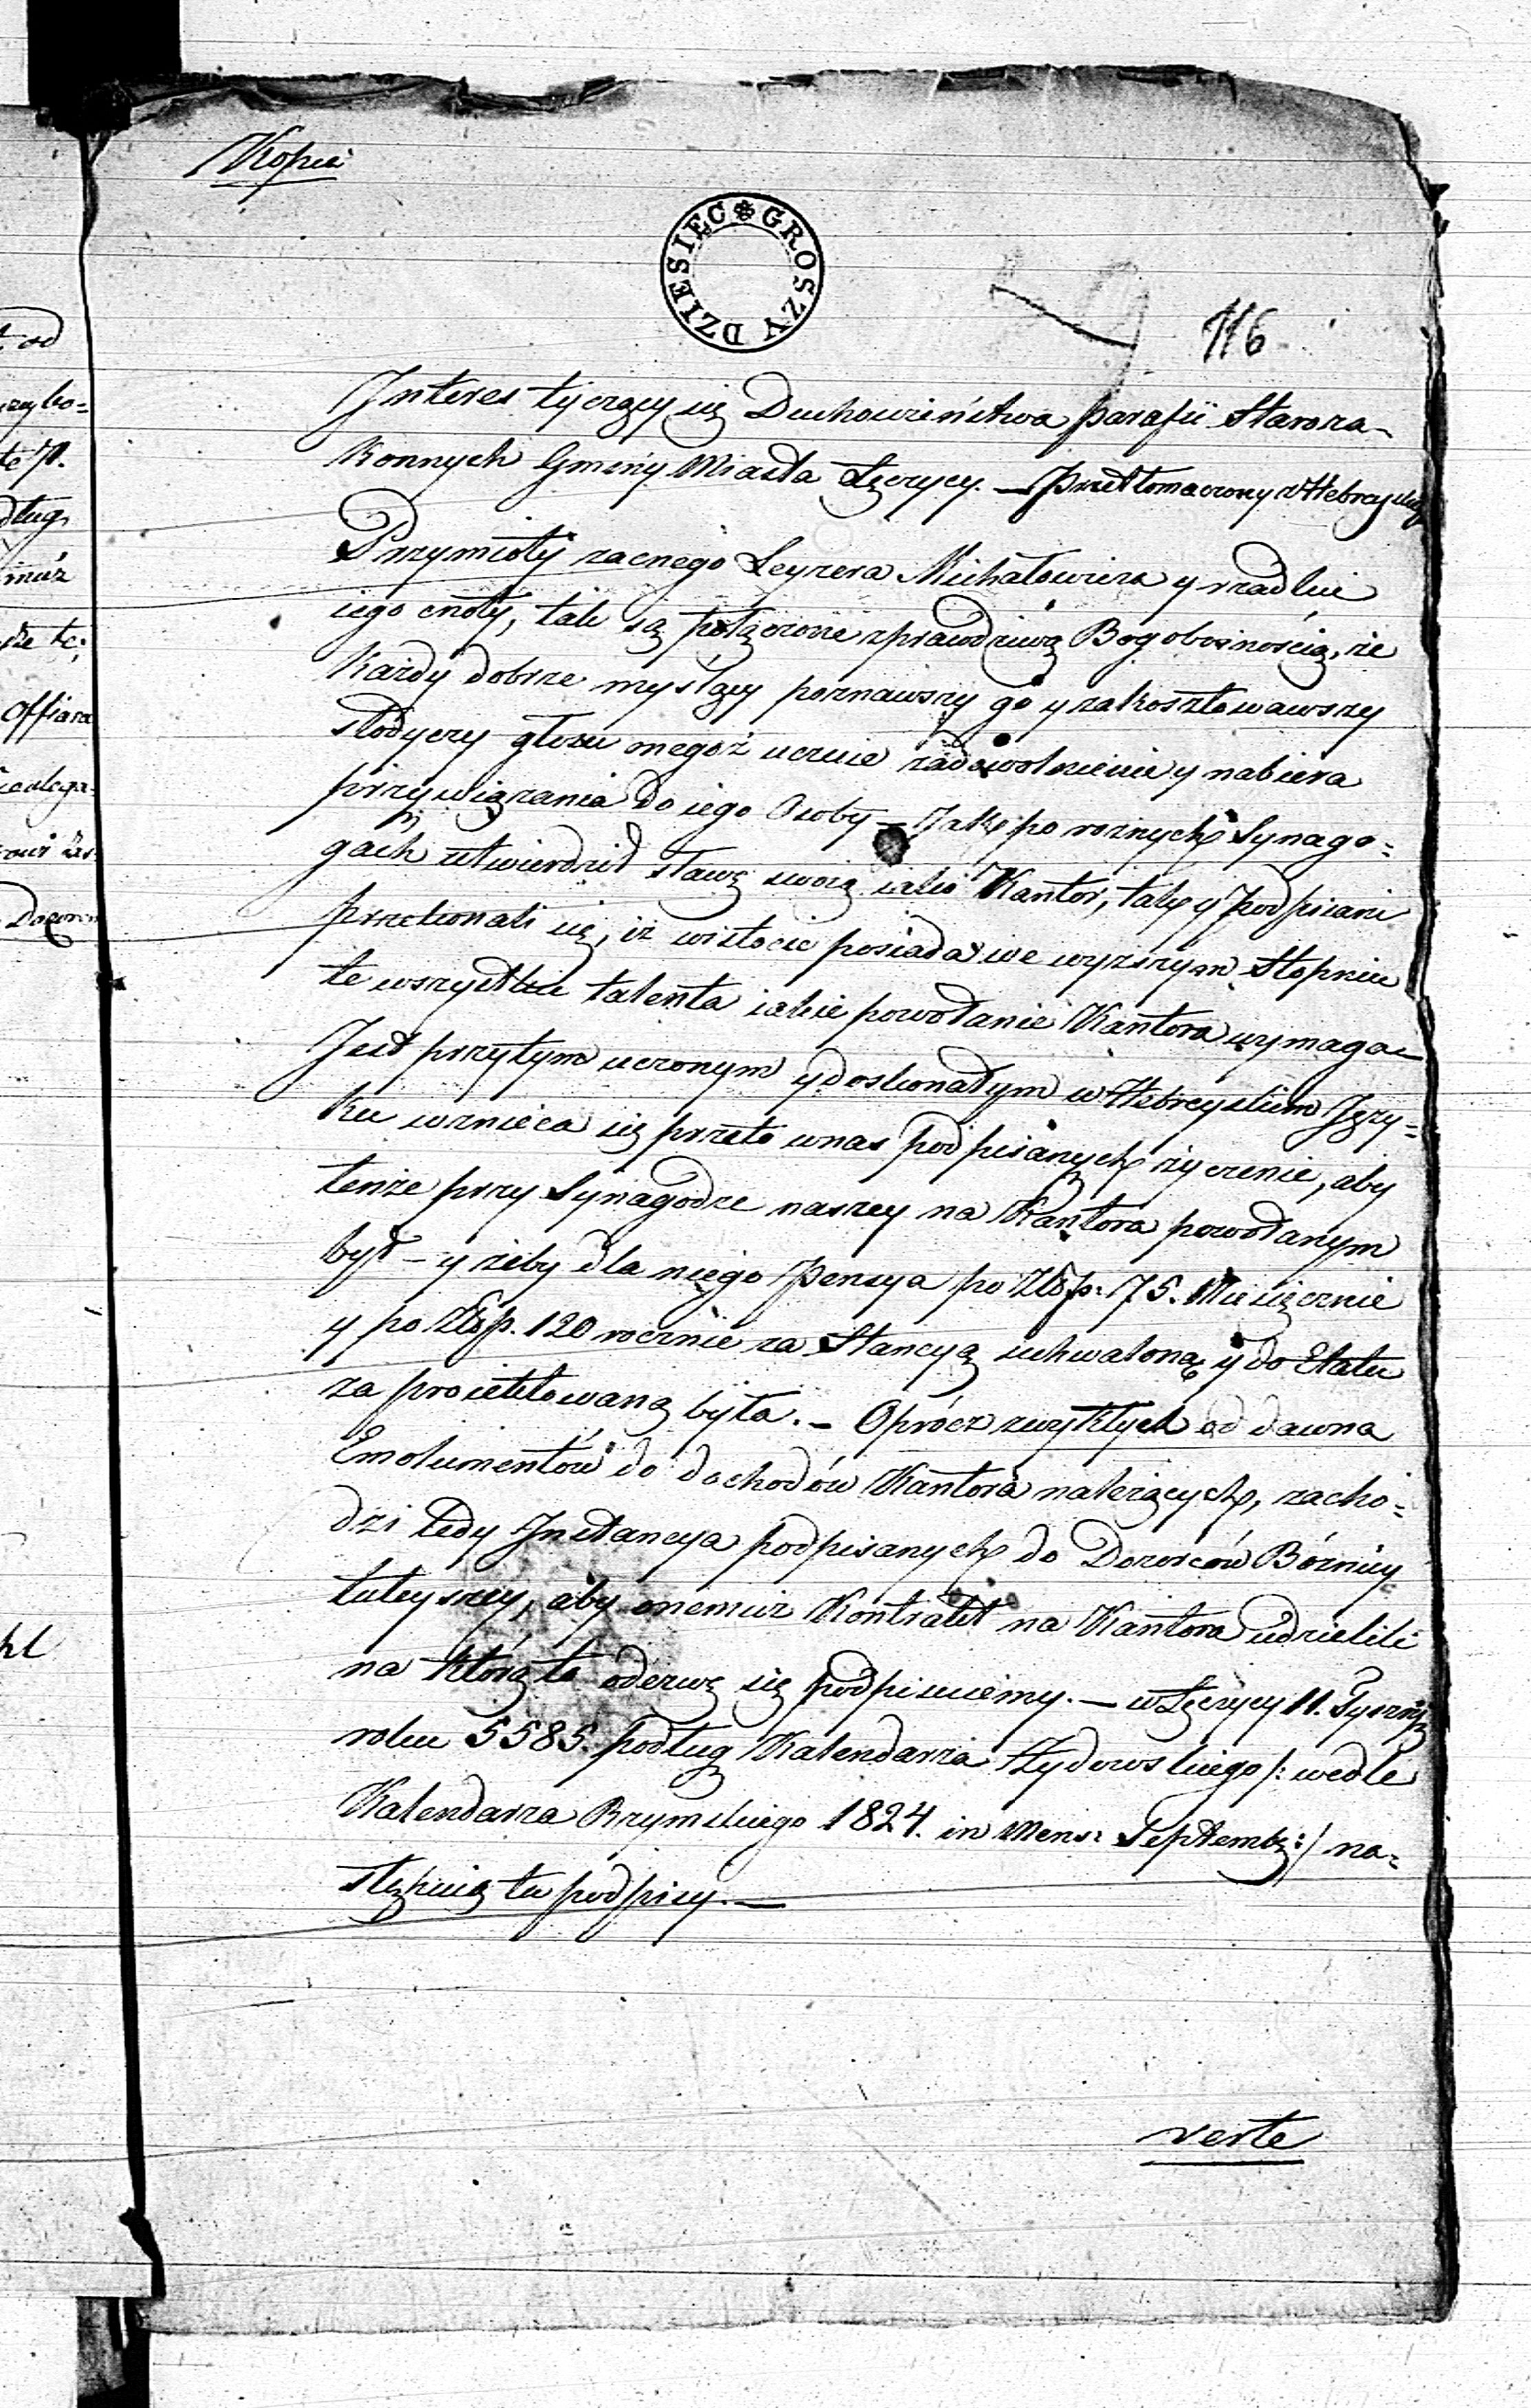 Kopia
DZIESIĘC GROSZY
29
116
Jnteres tyczący się Duchowieństwa parafii Staroza-
konnych Gminy Miasta Łęczycy. — Przetłomaczony z Hebrayskig
Przymioty zacnego Leyzera Michałowicza y rzadkie
iego cnoty, tak są połączone z prawdziwą Bogoboinością, że
Każdy dobrze myślący poznawszy go y zakosztowawszy
słodyczy głosu onegoż uczuie zadowolnienie y nabiera
przywiązania do iego Osoby — Jak po roznych Synago=
gach utwierdził sławę swoią iako Kantor, tak y podpisani
przekonali się, iż wistocie posiada we wyższym Stopniu
te wszystkie talenta iakie powołanie Kantora wymaga —
Jest przytym uczonym y doskonałym w Hebreyskim Języ=
ku wznieca się przeto w nas podpisanych życzenie, aby
tenże przy Synagodze naszey na Kantora powołanym
był — y żeby dla niego Pensya po Złłp: 75. Miesięcznie
y po Złłp. 120 rocznie za Stancyą uchwaloną y do Etatu
za proiektowaną była. — Oprócz zwykłych od dawna
Emolumentów do dochodów Kantora należących, zacho=
dzi tedy Jnstancya podpisanych do Dozorców Bóżnicy
tuteyszey, aby onemuż Kontrakt na Kantora udzielili
na którą to odezwę się podpisuiemy. — w Łęczycy 11. Tyszry
roku 5585. podług Kalendarza Żydowskiego /: wedle
Kalendarza Rzymskiego 1824. in Mens: Septembr :/ na=
stępuią tu podpisy. —
verte